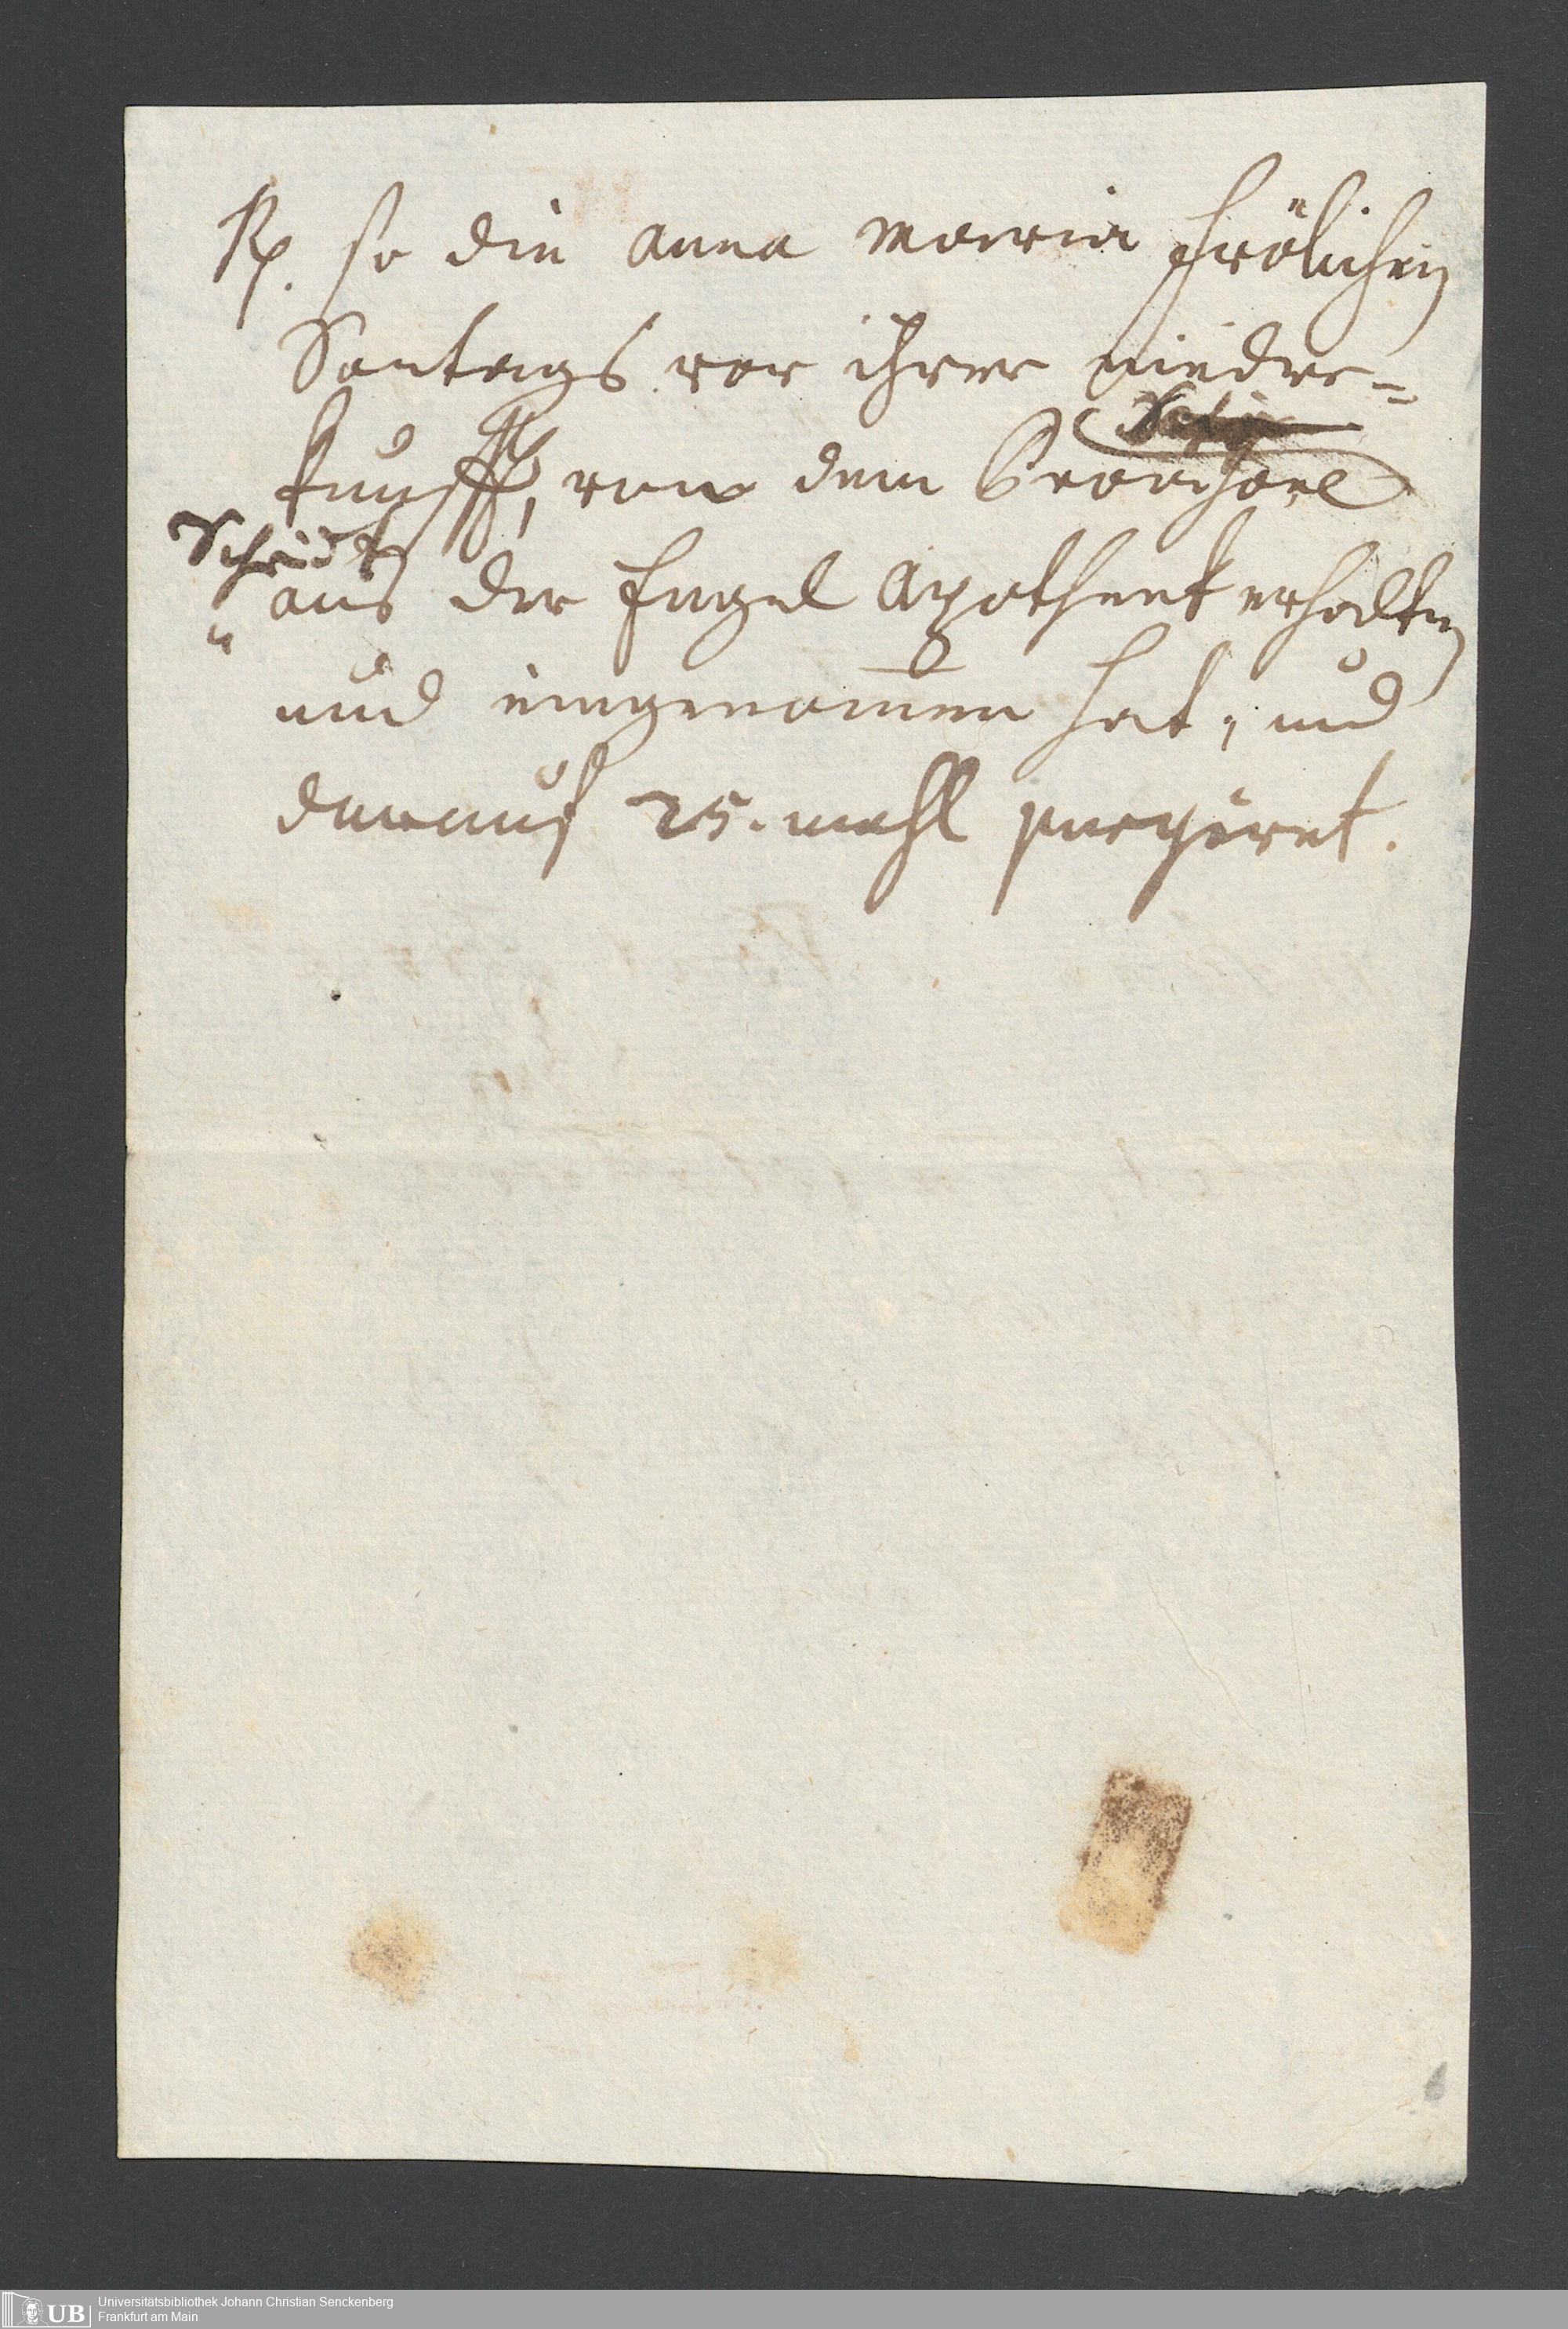 Rp. so die anna maria Frölichin
Sontags vor ihrer nieder=
kunfft, von dem
Scheidt
aus der Engel Apotheek erhalten
und eingenommen hat, und
darauf 25. mahl purgiret.
UB
Universitätsbibliothek Johann Christian Senckenberg
Frankfurt am Main